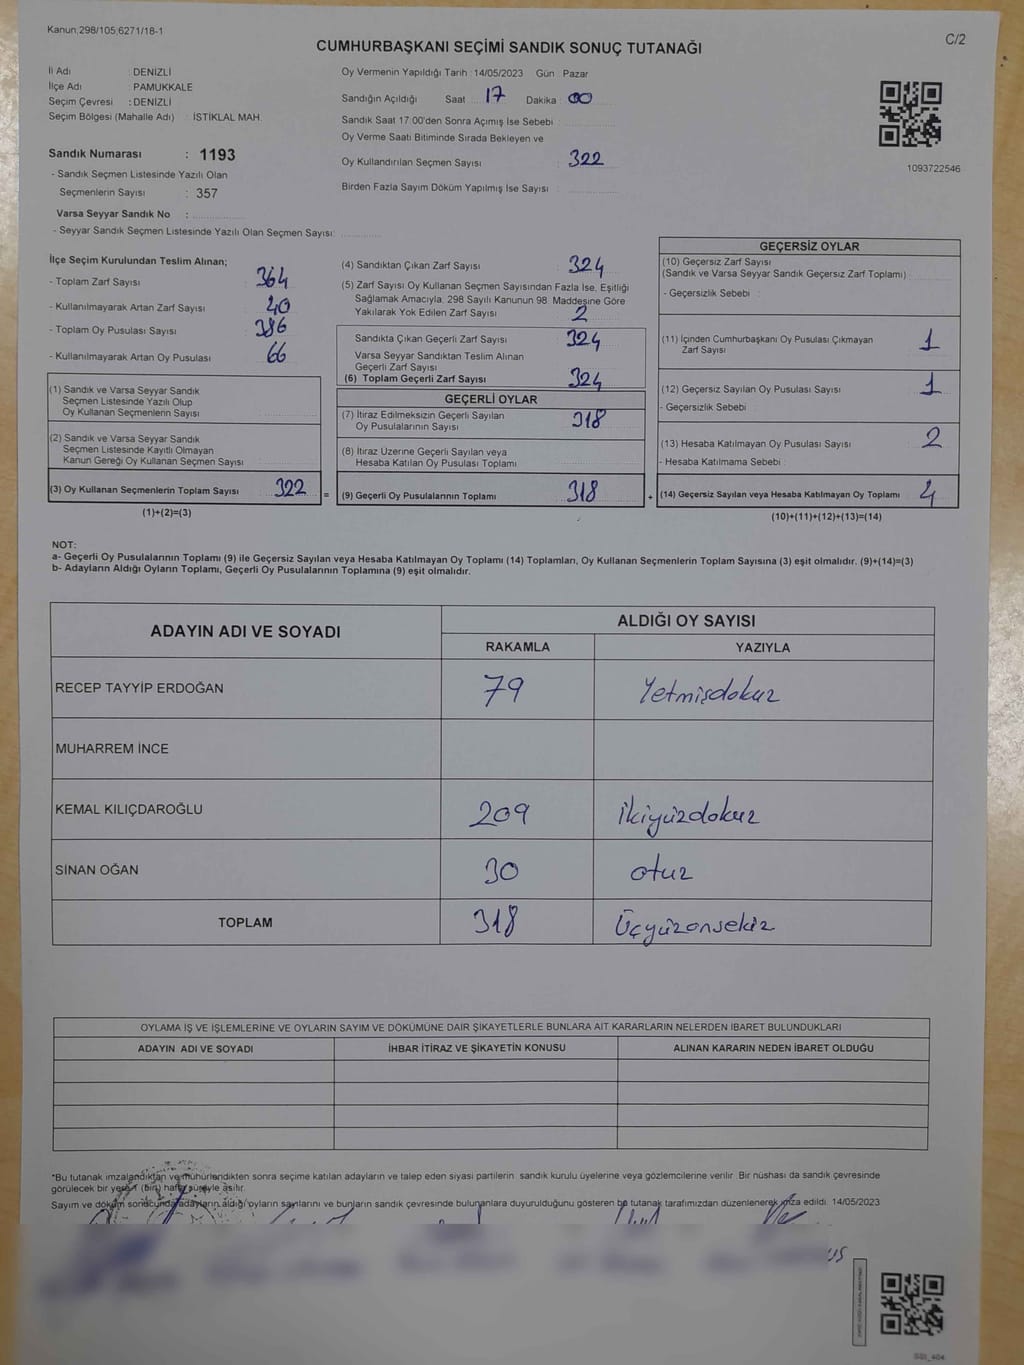 Kanun;298/105;6271/18-1
C/2
CUMHURBAŞKANI SEÇİMİ SANDIK SONUÇ TUTANAĞI
İl Adı : DENİZLİ
İlçe Adı : PAMUKKALE
Seçim Çevresi : DENİZLİ
Seçim Bölgesi (Mahalle Adı) : İSTİKLAL MAH.
Sandık Numarası : 1193
- Sandık Seçmen Listesinde Yazılı Olan
Seçmenlerin Sayısı : 357
Varsa Seyyar Sandık No :
- Seyyar Sandık Seçmen Listesinde Yazılı Olan Seçmen Sayısı:
Oy Vermenin Yapıldığı Tarih : 14/05/2023 Gün : Pazar
Sandığın Açıldığı Saat : 17 Dakika : 00
Sandık Saat 17:00'den Sonra Açımış İse Sebebi
Oy Verme Saati Bitiminde Sırada Bekleyen ve
Oy Kullandırılan Seçmen Sayısı : 322
Birden Fazla Sayım Döküm Yapılmış İse Sayısı :
1093722546
İlçe Seçim Kurulundan Teslim Alınan;
- Toplam Zarf Sayısı : 364
- Kullanılmayarak Artan Zarf Sayısı : 40
- Toplam Oy Pusulası Sayısı : 386
- Kullanılmayarak Artan Oy Pusulası : 66
(1) Sandık ve Varsa Seyyar Sandık
Seçmen Listesinde Yazılı Olup
Oy Kullanan Seçmenlerin Sayısı :
(2) Sandık ve Varsa Seyyar Sandık
Seçmen Listesinde Kayıtlı Olmayan
Kanun Gereği Oy Kullanan Seçmen Sayısı :
(3) Oy Kullanan Seçmenlerin Toplam Sayısı : 322 =
(1)+(2)=(3)
(4) Sandıktan Çıkan Zarf Sayısı : 324
(5) Zarf Sayısı Oy Kullanan Seçmen Sayısından Fazla İse, Eşitliği
Sağlamak Amacıyla, 298 Sayılı Kanunun 98. Maddesine Göre
Yakılarak Yok Edilen Zarf Sayısı : 2
Sandıkta Çıkan Geçerli Zarf Sayısı : 324
Varsa Seyyar Sandıktan Teslim Alınan
Geçerli Zarf Sayısı :
(6) Toplam Geçerli Zarf Sayısı : 324
GEÇERLİ OYLAR
(7) İtiraz Edilmeksizin Geçerli Sayılan
Oy Pusulalarının Sayısı : 318
(8) İtiraz Üzerine Geçerli Sayılan veya
Hesaba Katılan Oy Pusulası Toplamı :
(9) Geçerli Oy Pusulalarının Toplamı : 318 +
GEÇERSİZ OYLAR
(10) Geçersiz Zarf Sayısı
(Sandık ve Varsa Seyyar Sandık Geçersiz Zarf Toplamı) :
- Geçersizlik Sebebi :
(11) İçinden Cumhurbaşkanı Oy Pusulası Çıkmayan
Zarf Sayısı : 1
(12) Geçersiz Sayılan Oy Pusulası Sayısı : 1
- Geçersizlik Sebebi
(13) Hesaba Katılmayan Oy Pusulası Sayısı : 2
- Hesaba Katılmama Sebebi :
(14) Geçersiz Sayılan veya Hesaba Katılmayan Oy Toplamı : 4
(10)+(11)+(12)+(13)=(14)
NOT:
a- Geçerli Oy Pusulalarının Toplamı (9) ile Geçersiz Sayılan veya Hesaba Katılmayan Oy Toplamı (14) Toplamları, Oy Kullanan Seçmenlerin Toplam Sayısına (3) eşit olmalıdır. (9)+(14)=(3)
b- Adayların Aldığı Oyların Toplamı, Geçerli Oy Pusulalarının Toplamına (9) eşit olmalıdır.
ADAYIN ADI VE SOYADI
ALDIĞI OY SAYISI
RAKAMLA YAZIYLA
RECEP TAYYİP ERDOĞAN 79 Yetmişdokuz
MUHARREM İNCE
KEMAL KILIÇDAROĞLU 209 İkiyüzdokuz
SİNAN OĞAN 30 otuz
TOPLAM 318 Üçyüzonsekiz
OYLAMA İŞ VE İŞLEMLERİNE VE OYLARIN SAYIM VE DÖKÜMÜNE DAİR ŞİKAYETLERLE BUNLARA AİT KARARLARIN NELERDEN İBARET BULUNDUKLARI
ADAYIN ADI VE SOYADI İHBAR İTİRAZ VE ŞİKAYETİN KONUSU ALINAN KARARIN NEDEN İBARET OLDUĞU
*Bu tutanak imzalandıktan ve mühürlendikten sonra seçime katılan adayların ve talep eden siyasi partilerin sandık kurulu üyelerine veya gözlemcilerine verilir. Bir nüshası da sandık çevresinde
görülecek bir yere 1 (bir) hafta süreyle asılır.
Sayım ve döküm sonucunda adayların aldığı oyların sayılarını ve bunların sandık çevresinde bulunanlara duyurulduğunu gösteren bu tutanak tarafımızdan düzenlenerek imza edildi. 14/05/2023